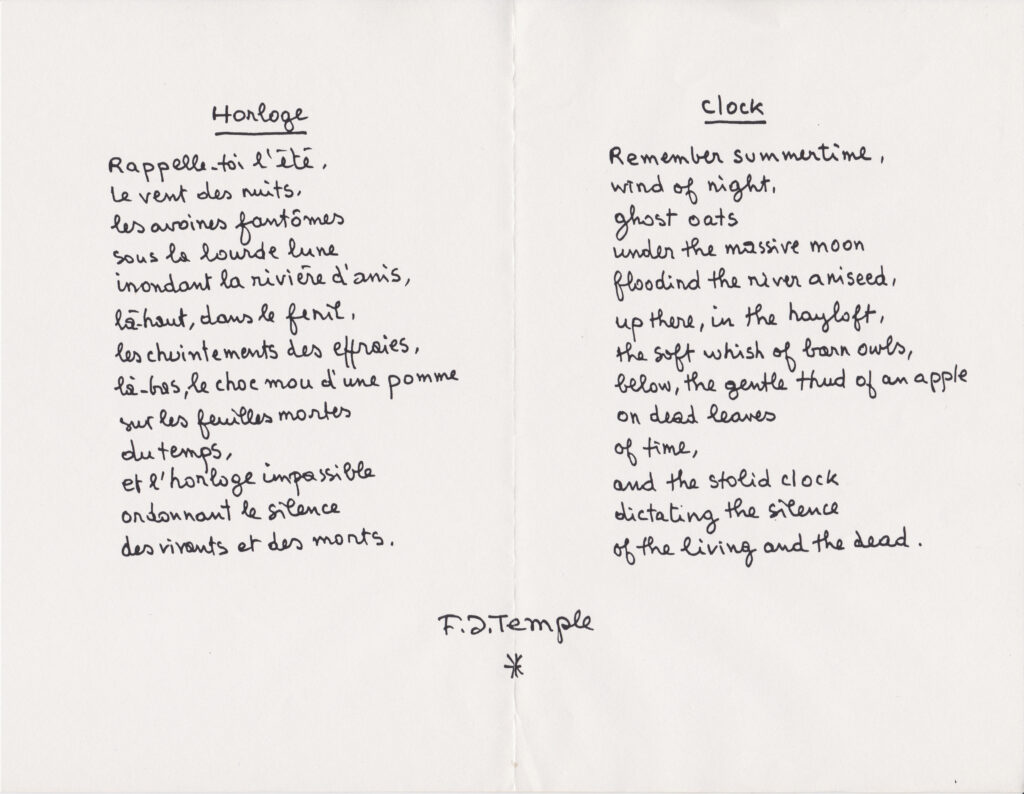 Horloge
Rappelle-toi l'été,
le vent des nuits,
les avoines fantômes
sous la lourde lune
inondant la rivière d'anis,
là-haut, dans le fenil,
les chuintements des effraies,
là-bas, le choc mou d'une pomme
sur les feuilles mortes
du temps,
et l'horloge impassible
ordonnant le silence
des vivants et des morts.
Clock
Remember summertime,
wind of night,
ghost oats
under the massive moon
floodind the river aniseed,
up there, in the hayloft,
the soft whish of barn owls,
below, the gentle thud of an apple
on dead leaves
of time,
and the stolid clock
dictating the silence
of the living and the dead.
F.J.Temple